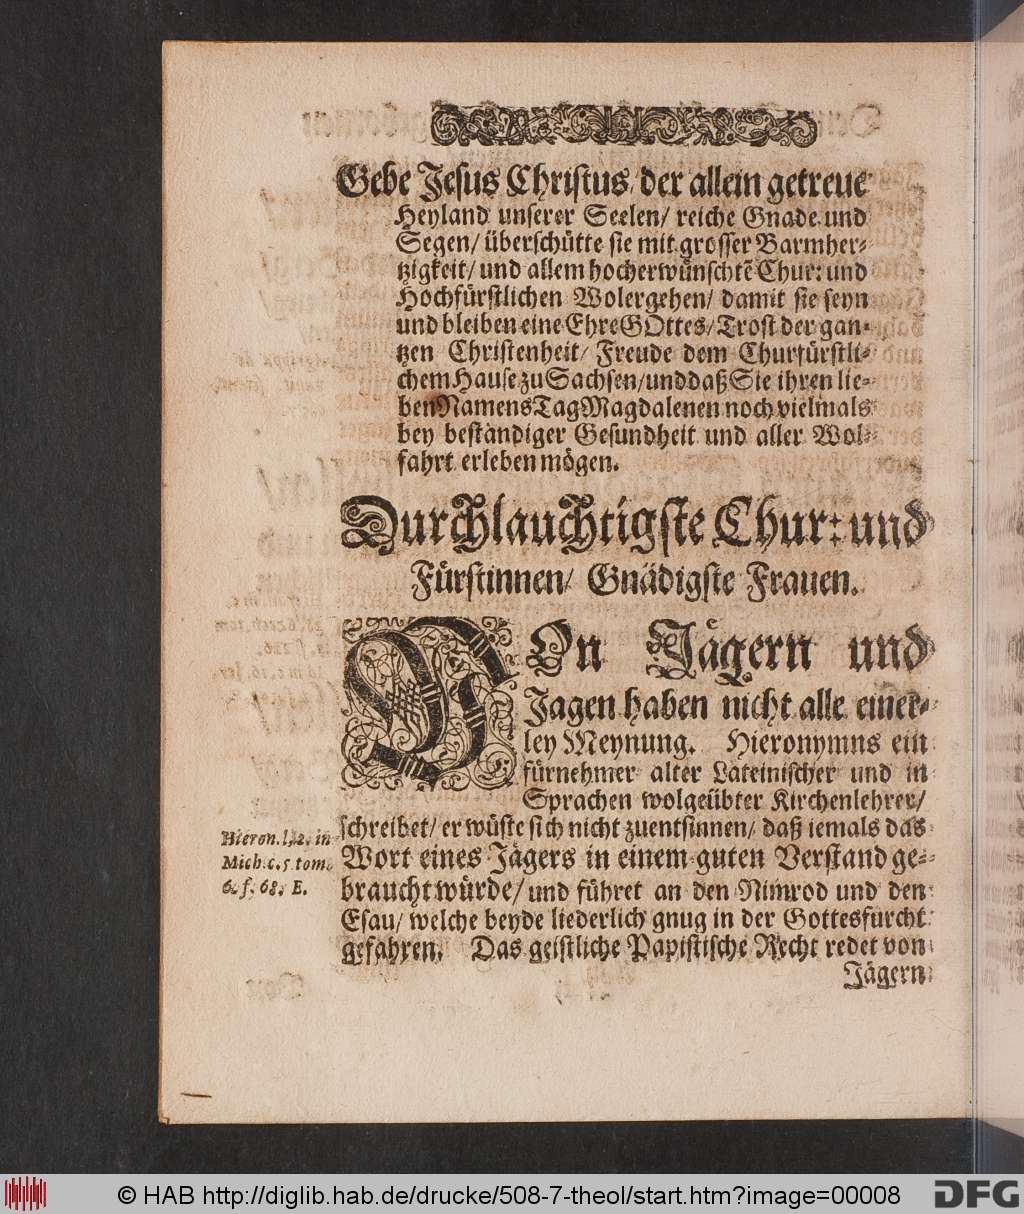 Gebe Jesus Christus/ der allein getreue
Heyland unserer Seelen/ reiche Gnade und
Segen/ überschütte sie mit grosser Barmher-
tzigkeit/ und allem hocherwünschtẽ Chur: und
Hochfürstlichen Wolergehen/ damit sie seyn
und bleiben eine Ehre GOttes/ Trost der gan-
tzen Christenheit/ Freude dem Churfürstli-
chem Hause zu Sachsen/ und daß Sie ihren lie-
ben Namens Tag Magdalenen noch vielmals
bey beständiger Gesundheit und aller Wol-
fahrt erleben mögen.
Durchlauchtigste Chur: und
Fürstinnen/ Gnädigste Frauen.
VOn Jägern und
Jagen haben nicht alle einer-
ley Meynung. Hieronymns ein
fürnehmer alter Lateinischer und in
Sprachen wolgeübter Kirchenlehrer/
schreibet/ er wüste sich nicht zuentsinnen/ daß iemals das
Wort eines Jägers in einem guten Verstand ge-
braucht würde/ und führet an den Nimrod und den
Esau/ welche beyde liederlich gnug in der Gottesfurcht
gefahren. Das geistliche Papistische Recht redet von
Jägern
Hieron. l. 2. in
Mich. c. 5 tom.
6. f. 68. E.
© HAB http://diglib.hab.de/drucke/508-7-theol/start.htm?image=00008
DFG